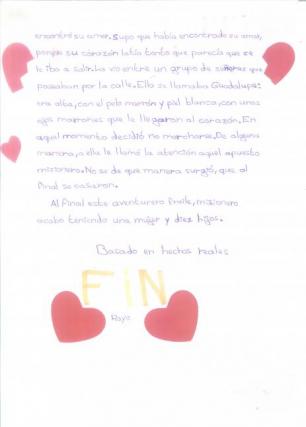 encontró su amor. Supo que había encontrado su amor,
porque su corazón latía tanto que parecía que se
le iba a salir. La vio entre un grupo de señoras que
pasaban por la calle. Ella se llamaba Guadalupe:
era alta, con el pelo marrón y piel blanca, con unos
ojos marrones que le llegaron al corazón. En
aquel momento decidió no marcharse. De alguna
manera, a ella le llamó la atención aquel apuesto
misionero. No se de que manera surgió, que al
final se casaron.
Al final este aventurero fraile, misionero
acabo teniendo una mujer y diez hijos.
Basado en hechos reales
FIN